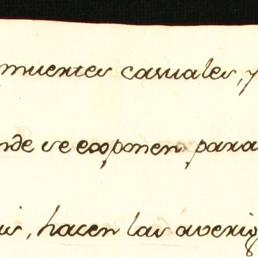 muertes casuales, y
nde se exponen para
is, hacen las averig